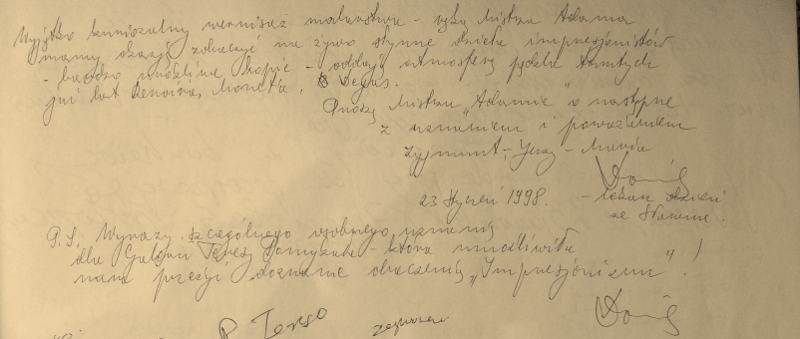 Wyjątko kameralny wernisaż malarstwa - ręką Mistrza Adama
mamy okazję zobaczyć na żywo słynne dzieła impresjonistów
- bardzo wrażliwe kopie - oddają atmosferę pędzla tamtych
już lat Renoira, Moneta, Degas.
Proszę Mistrzu "Adamie" o następne
z uznaniem i poważaniem
Zygmunt - Jerzy - Maria
23 Styczeń 1998. - lekarz
ze Sławna.
P.S. Wyrazy szczególnego osobnego uznania
dla Galerii Teresy - która umożliwiła
nam przeżyć doznanie obcowania "Impresjonizm"!
P. Teresa